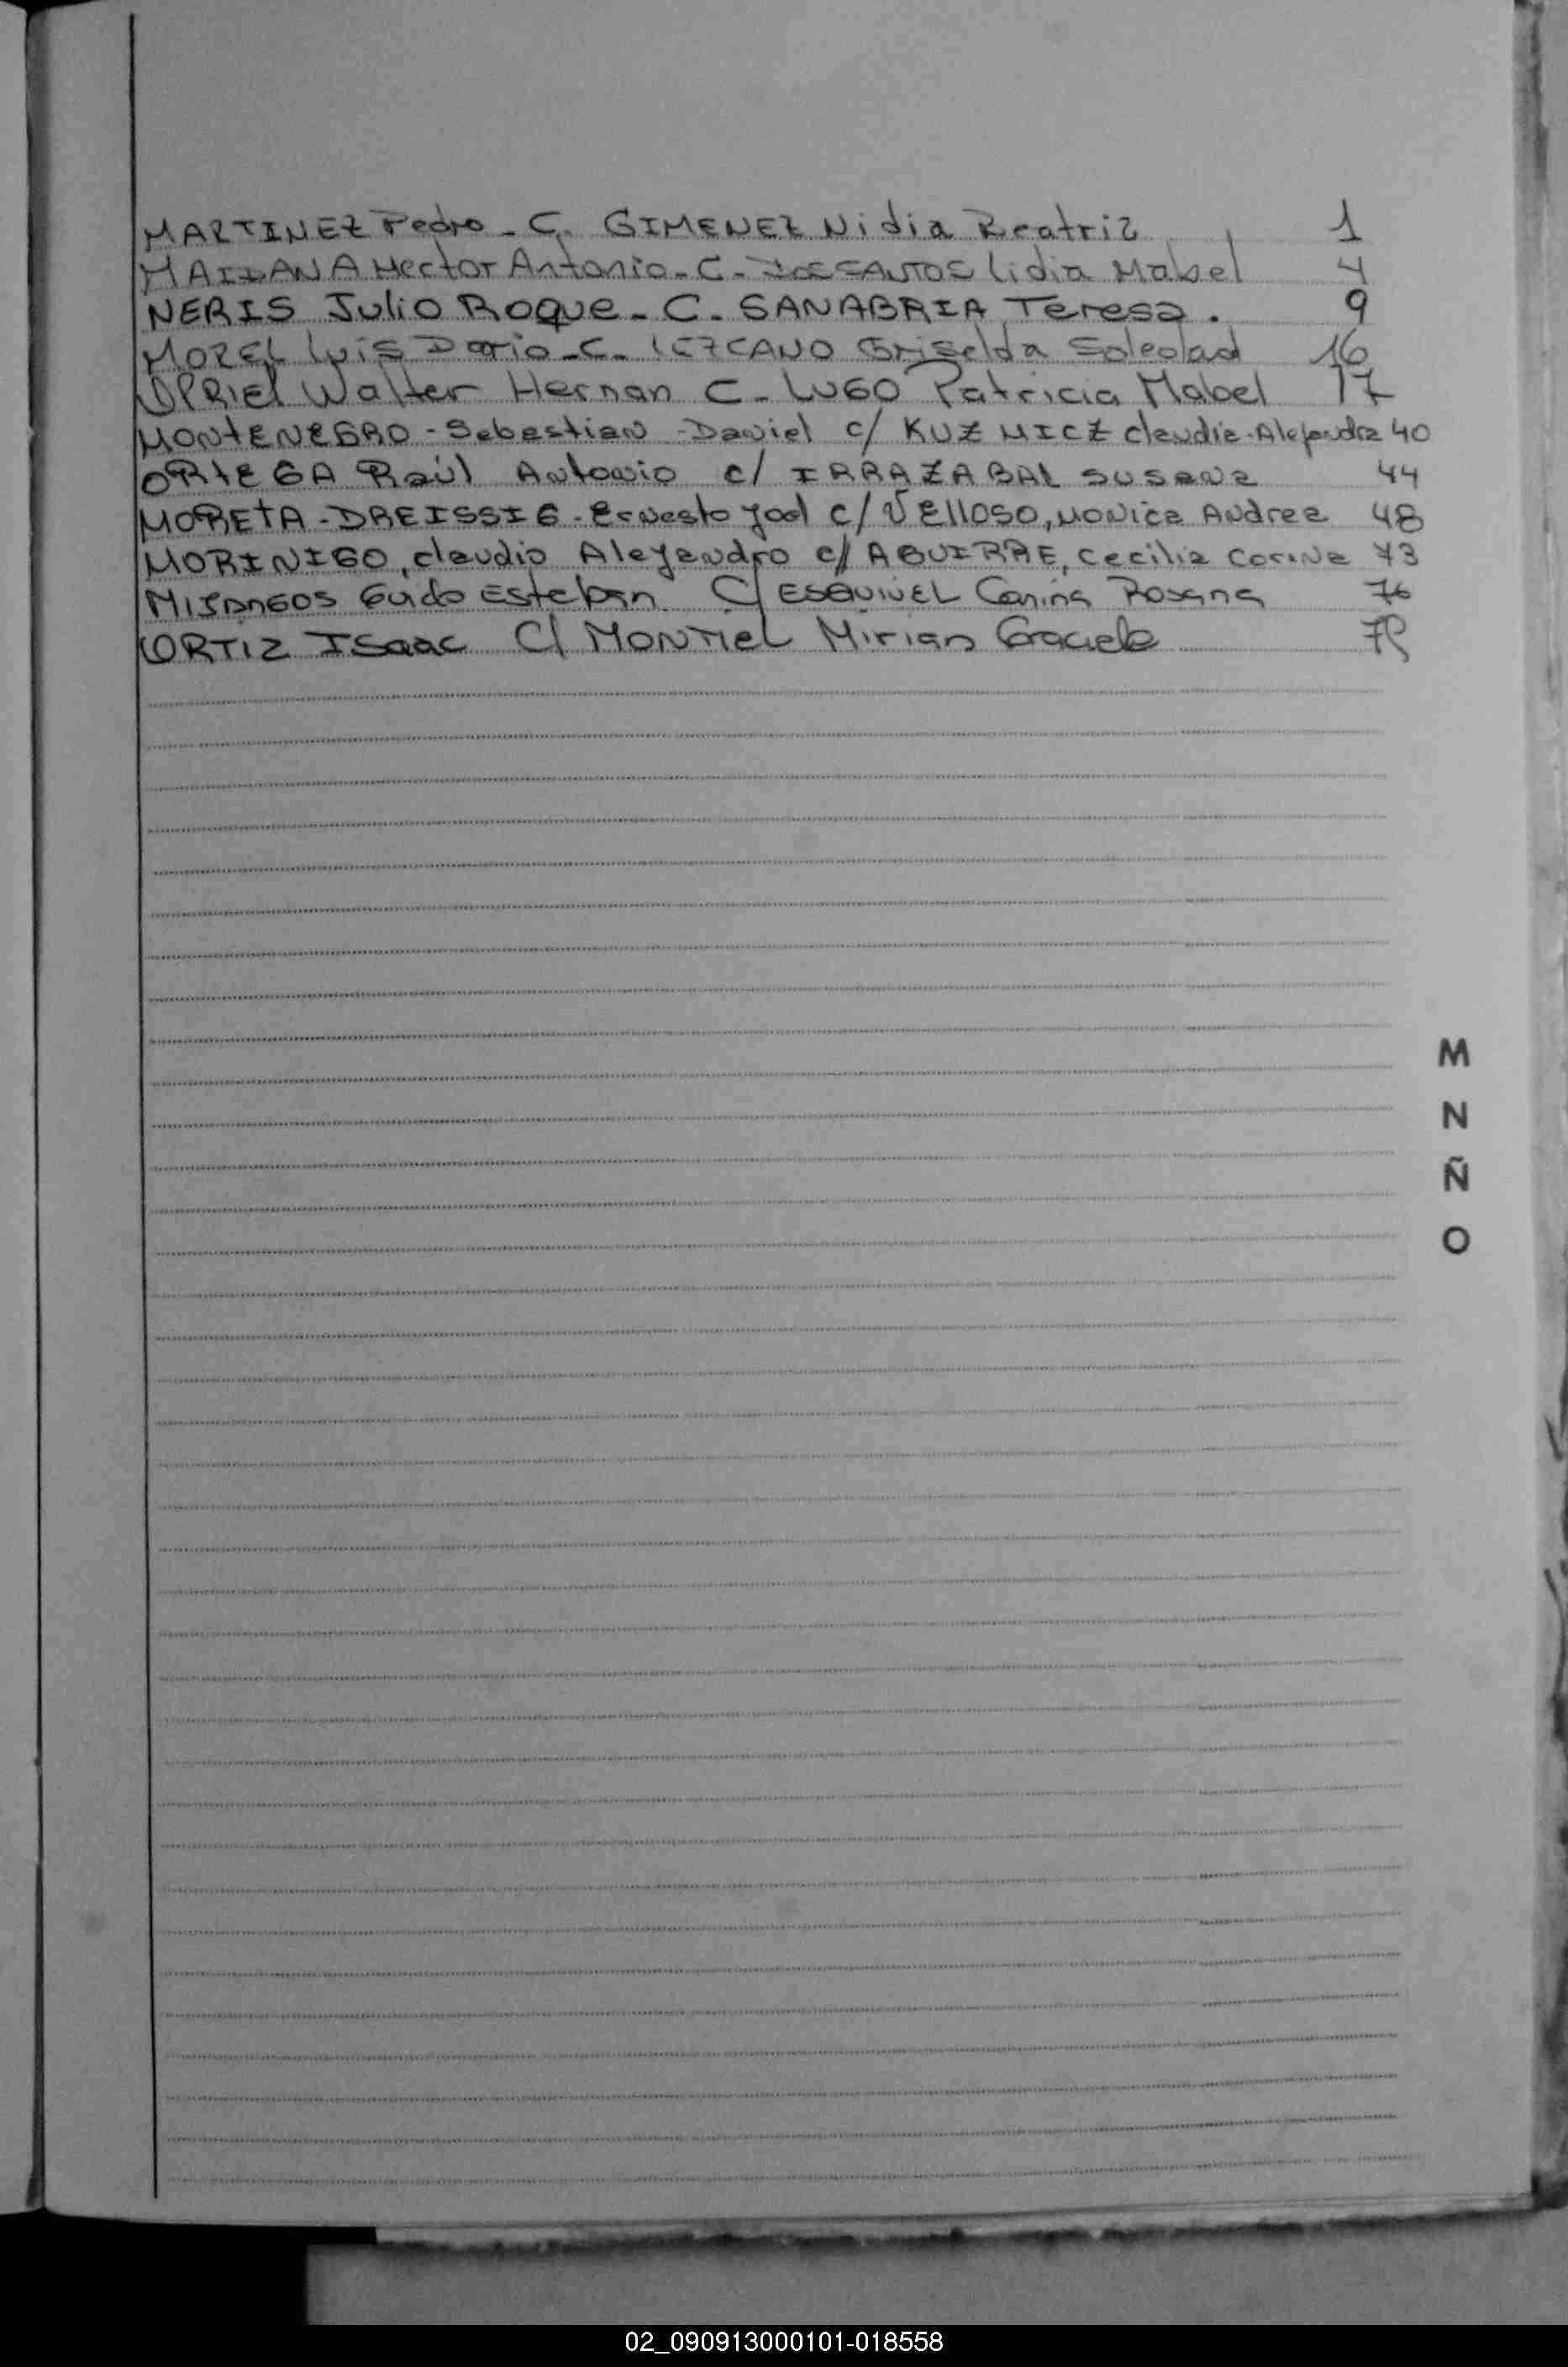 MARTINEZ Pedro - C. GIMENEZ Nidia Beatriz 1
MAIDANA Hector Antonio - C - DOS SANTOS Lidia Mabel 4
NERIS Julio Roque - C - SANABRIA Teresa. 9
MOREL Luis Dario - C - LEZCANO Griselda Soledad 16
Walter Hernan C - LUGO Patricia Mabel 17
MONTENEGRO - Sebastian - Daniel c/ KUZMICZ Claudia - Alejandra 40
ORTEGA Raúl Antonio c/ IRRAZABAL Susana 44
MORETA - DREISSIG - Ernesto Joel c/ VELLOSO, Monica Andrea 48
MORINIGO, Claudio Alejandro c/ AGUIRRE, Cecilia Corina 73
Guido Esteban C/ ESQUIVEL Carina Rosana 76
ORTIZ Isaac C/ MONTIEL Mirian Graciela
M
N
Ñ
O
02_090913000101-018558